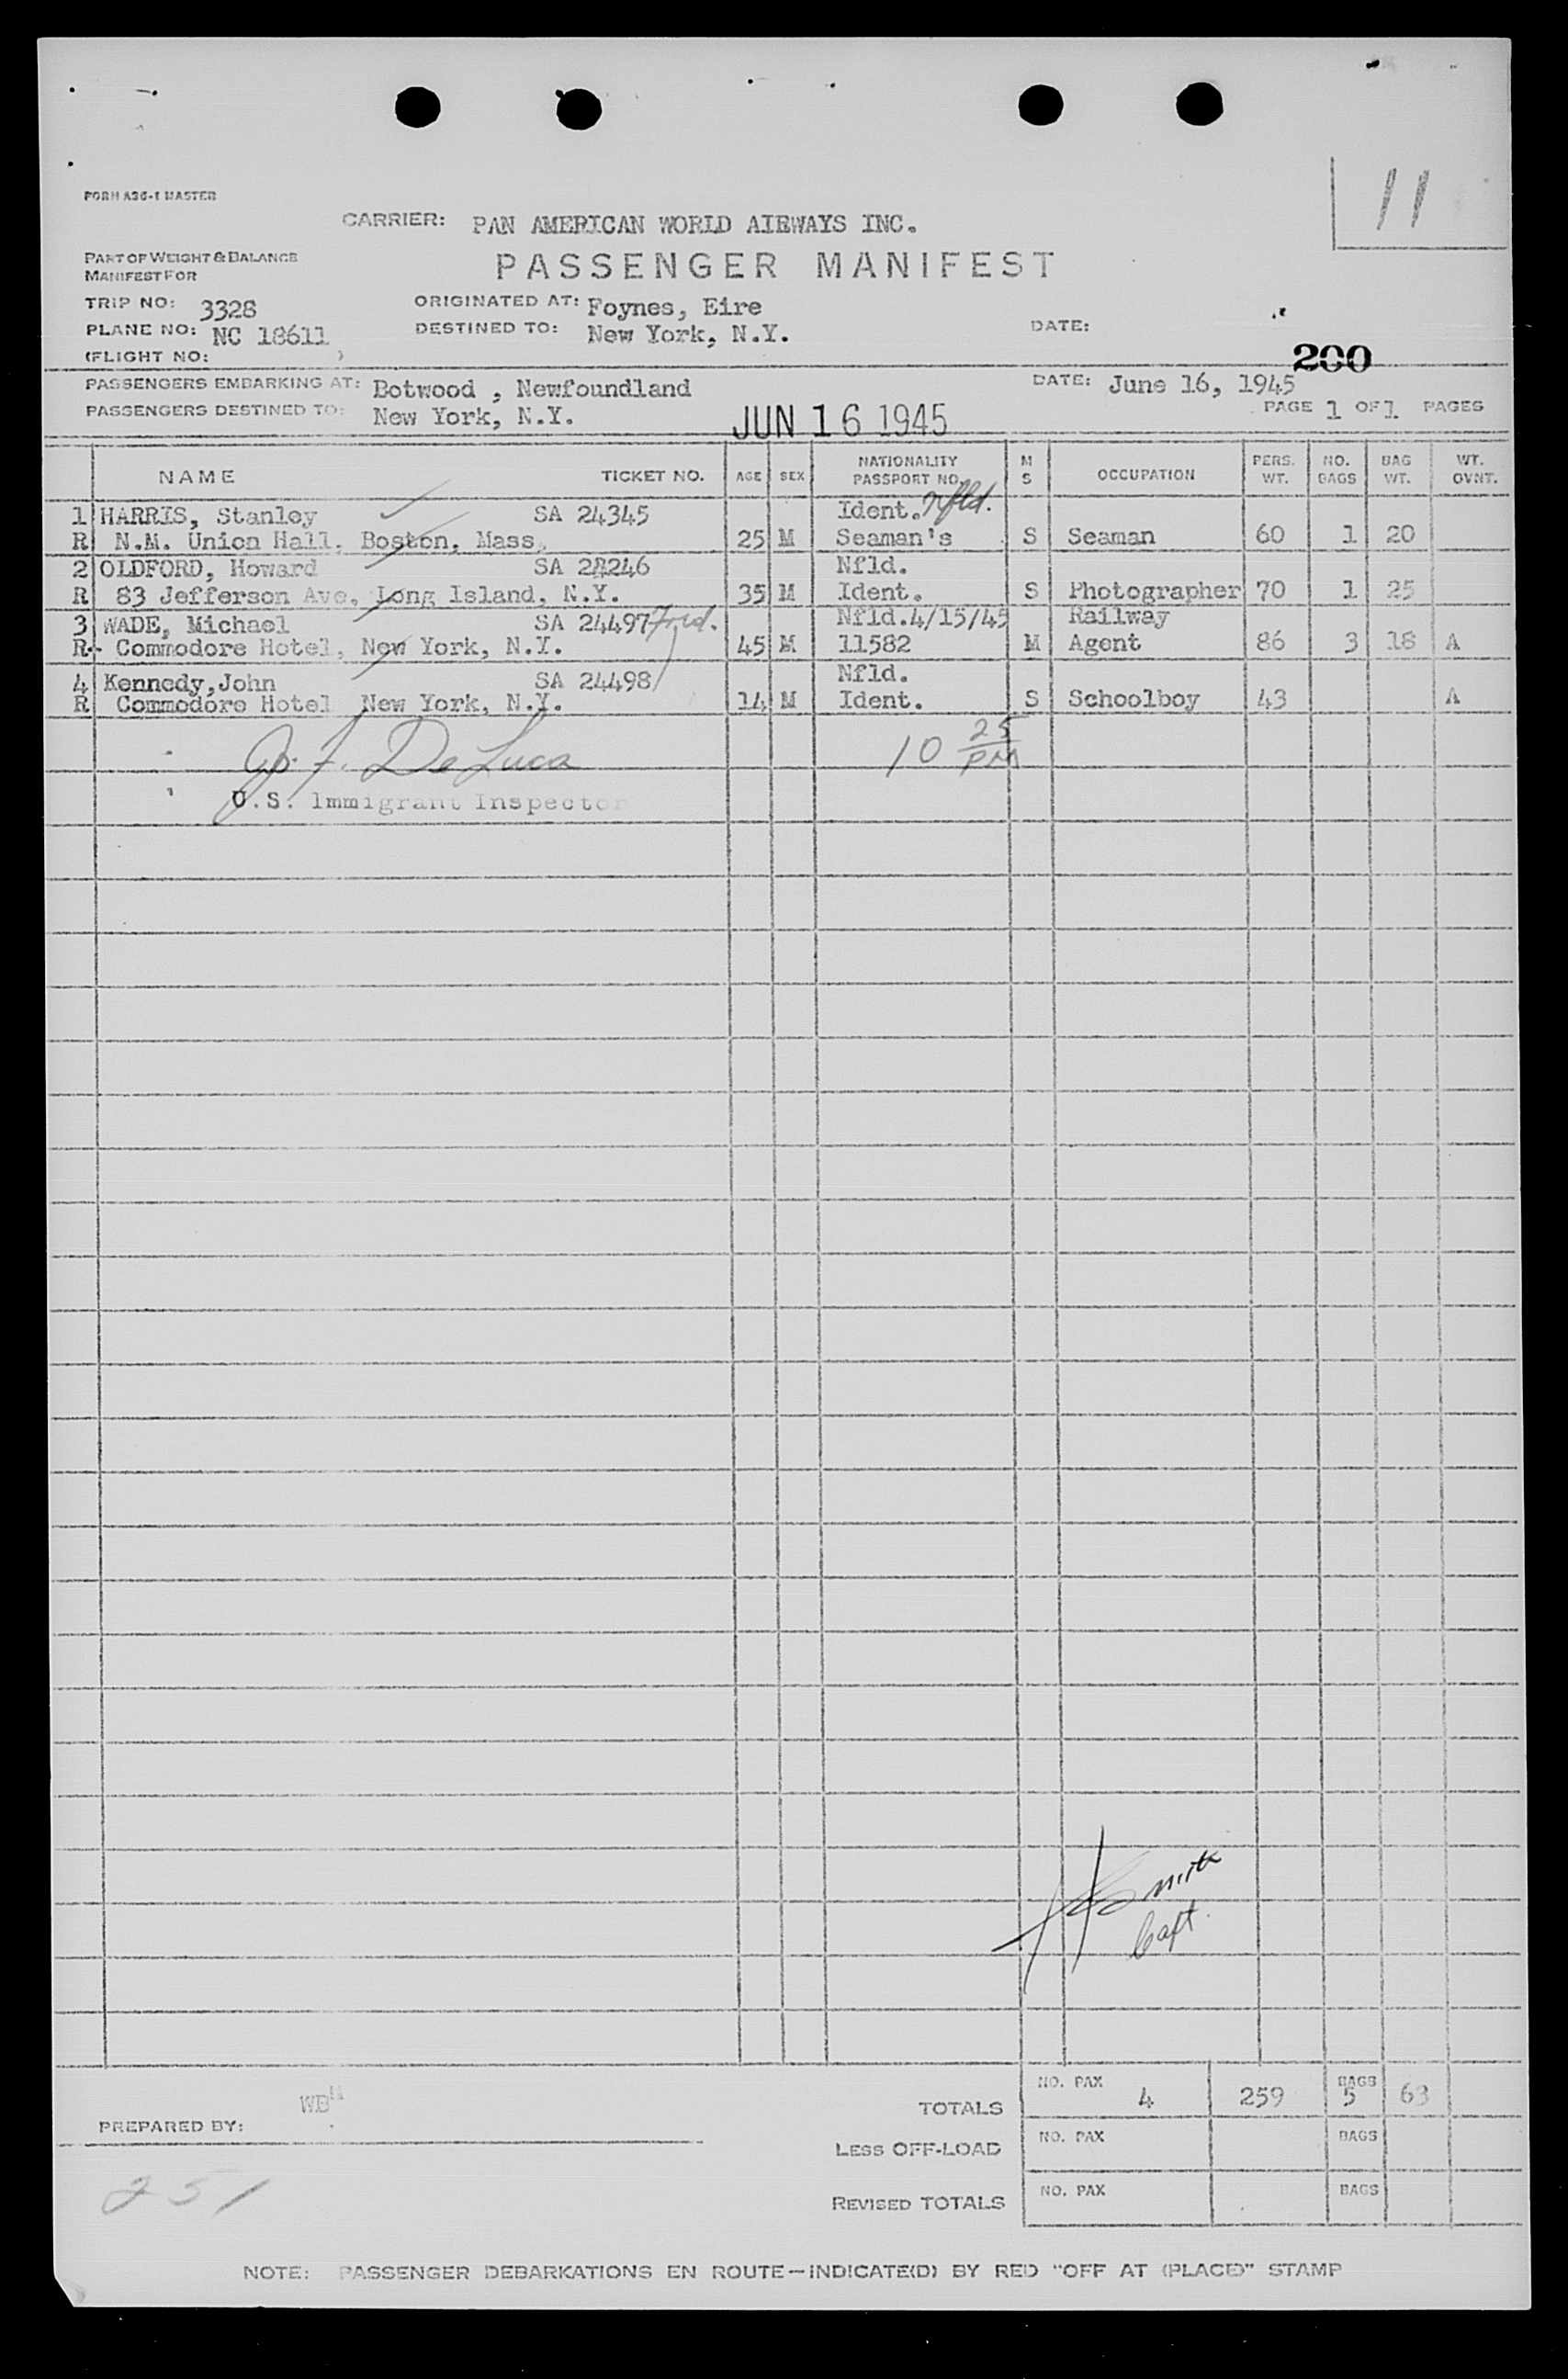 FORM A36-1 MASTER
11
CARRIER: PAN AMERICAN WORLD AIRWAYS INC.
PART OF WEIGHT & BALANCE
MANIFEST FOR
PASSENGER MANIFEST
TRIP NO: 3328 ORIGINATED AT: Foynes, Eire
PLANE NO: NC 18611 DESTINED TO: New York, N.Y. DATE:
(FLIGHT NO: )
200
PASSENGERS EMBARKING AT: Botwood , Newfoundland DATE: June 16, 1945
PASSENGERS DESTINED TO: New York, N.Y. JUN 16 1945 PAGE 1 OF 1 PAGES
NAME TICKET NO. AGE SEX NATIONALITY PASSPORT NO. M S OCCUPATION PERS. WT. NO. BAGS BAG WT. WT. OVNT.
1 HARRIS, Stanley SA 24345 Ident. Nfld.
R N.M. Union Hall. Boston, Mass. 25 M Seaman's S Seaman 60 1 20
2 OLDFORD, Howard SA 28246 Nfld.
R 83 Jefferson Ave, Long Island, N.Y. 35 M Ident. S Photographer 70 1 25
3 WADE, Michael SA 24497 Nfld.4/15/45 Railway
R Commodore Hotel, New York, N.Y. 45 M 11582 M Agent 86 3 18 A
4 Kennedy,John SA 24498 Nfld.
R Commodore Hotel New York, N.Y. 14 M Ident. S Schoolboy 43 A
De Luca 10 25 PM
U.S. Immigrant Inspector
Smith
Capt.
TOTALS NO. PAX 4 259 BAGS 5 63
WB
PREPARED BY:
LESS OFF-LOAD NO. PAX BAGS
251
REVISED TOTALS NO. PAX BAGS
NOTE: PASSENGER DEBARKATIONS EN ROUTE—INDICATE(D) BY RED "OFF AT (PLACE)" STAMP